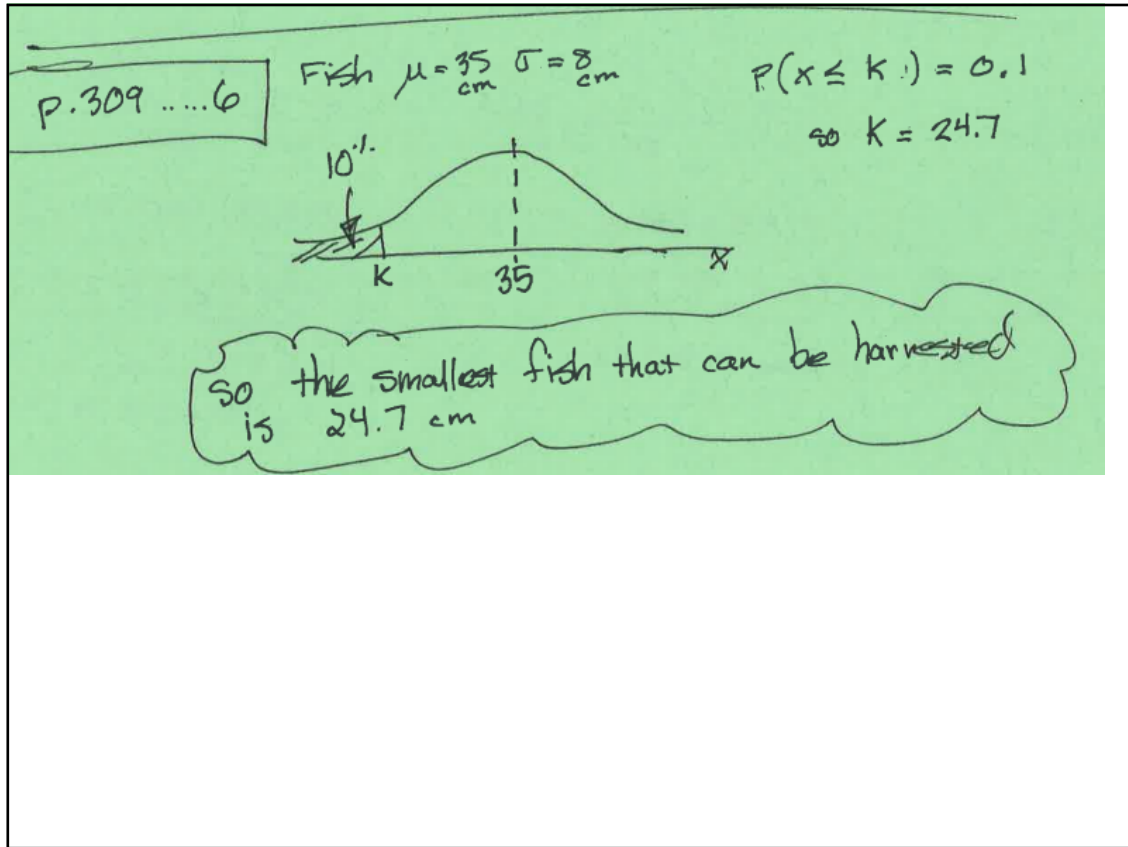 p.309 .....6
Fish μ = 35 cm σ = 8 cm
P(x ≤ K) = 0.1
so K = 24.7
10%
K
35
x
so the smallest fish that can be harvested
is 24.7 cm